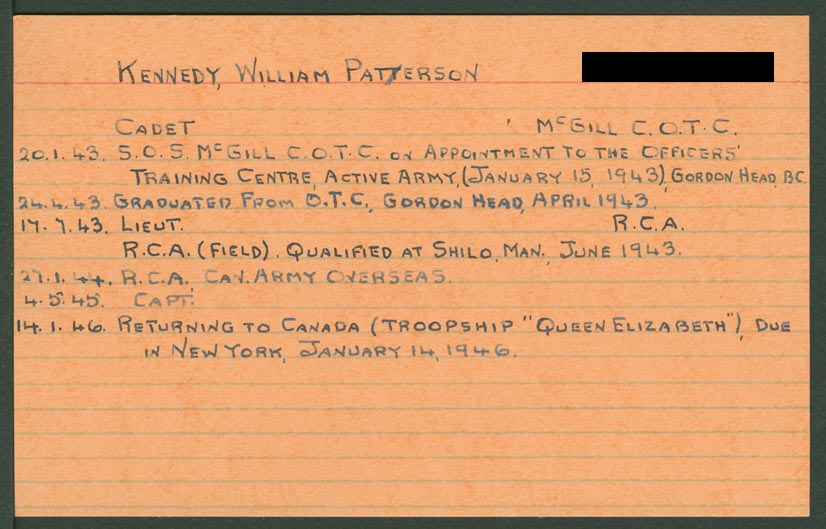 KENNEDY, WILLIAM PATTERSON
CADET McGILL C.O.T.C.
20.1.43. S.O.S. McGILL C.O.T.C. ON APPOINTMENT TO THE OFFICERS'
TRAINING CENTRE, ACTIVE ARMY, (JANUARY 15, 1943), GORDON HEAD, B.C.
24.4.43. GRADUATED FROM O.T.C., GORDON HEAD, APRIL 1943.
17.7.43. LIEUT. R.C.A.
R.C.A. (FIELD). QUALIFIED AT SHILO, MAN., JUNE 1943.
27.1.44. R.C.A. CAN. ARMY OVERSEAS.
4.5.45. CAPT.
14.1.46. RETURNING TO CANADA (TROOPSHIP "QUEEN ELIZABETH"), DUE
IN NEW YORK, JANUARY 14, 1946.